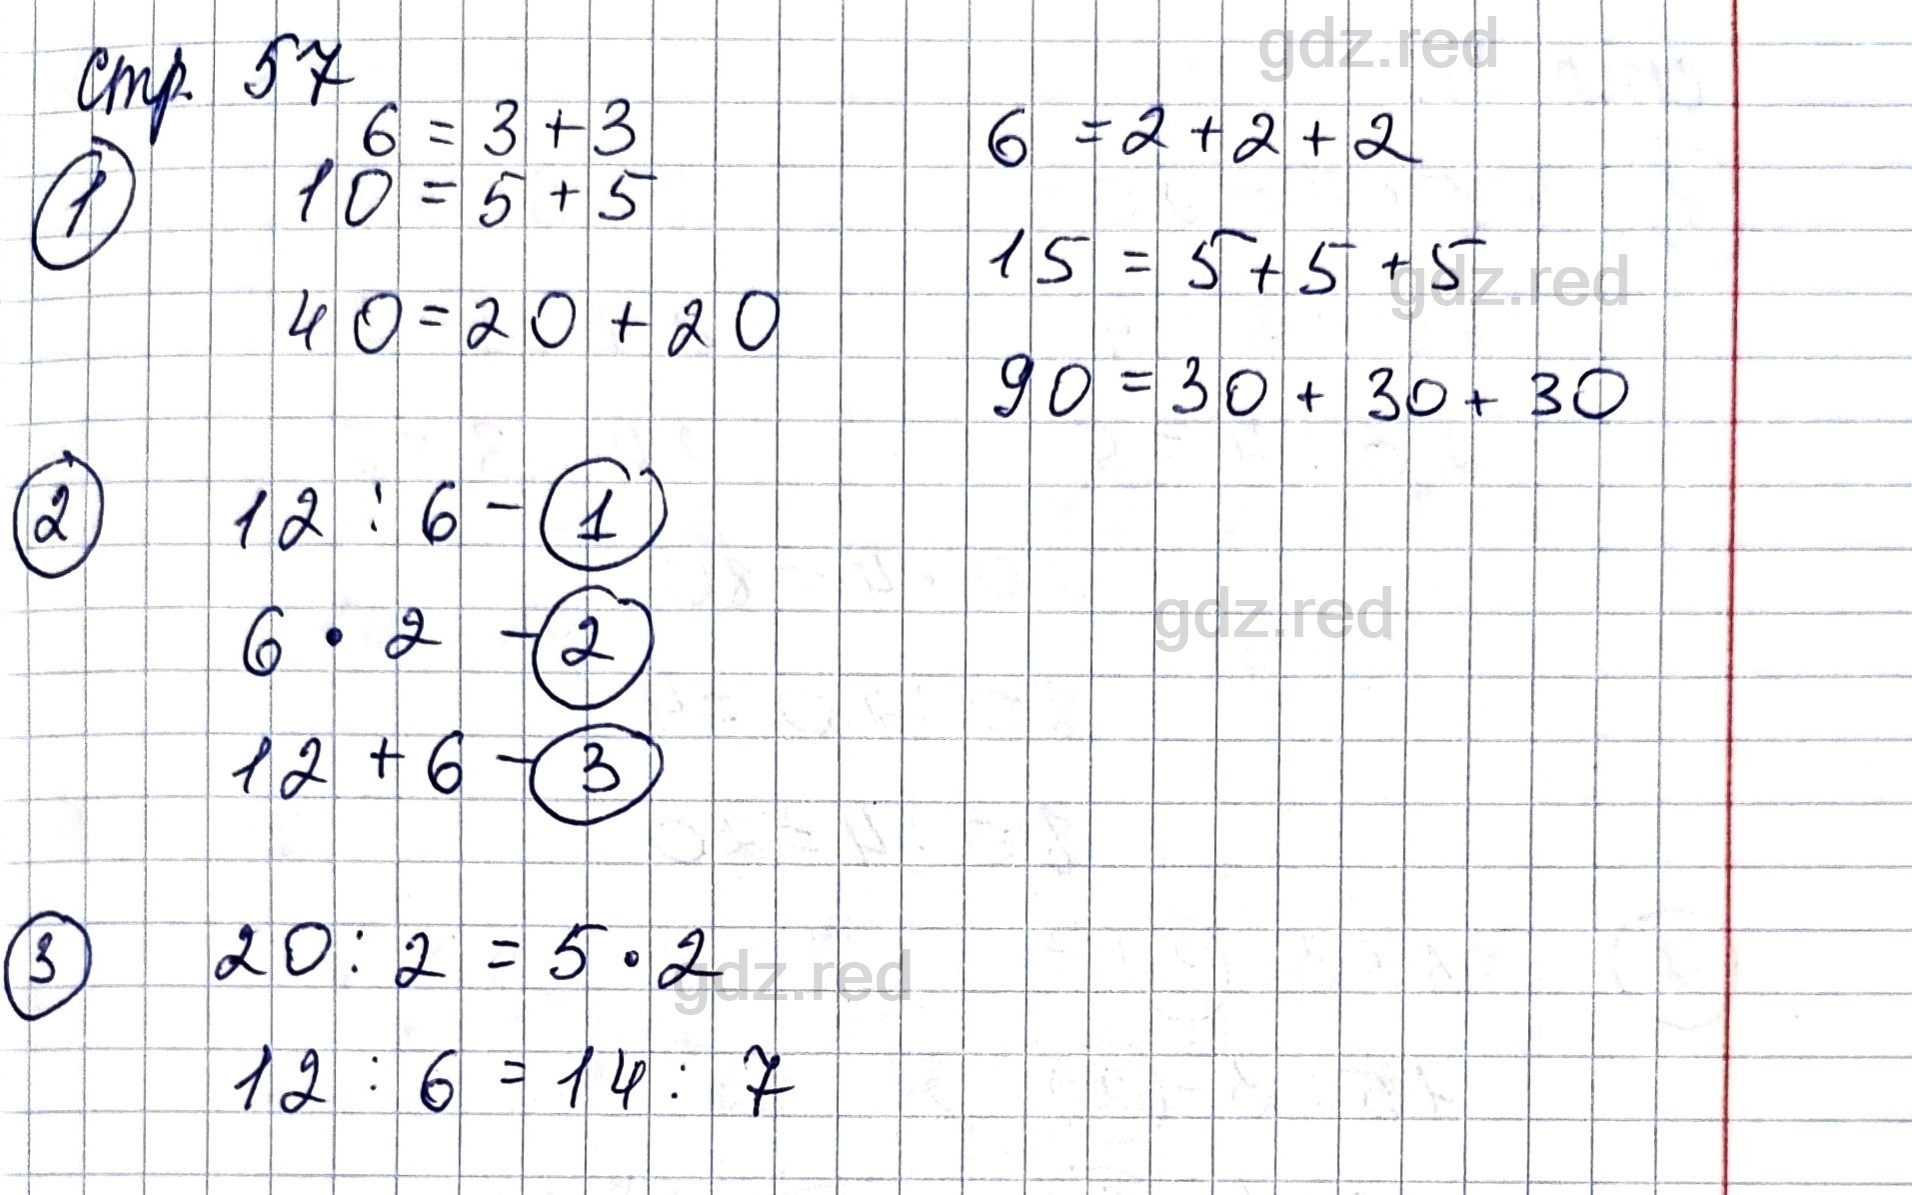 gdz.red
стр. 57
6 = 3 + 3
6 = 2 + 2 + 2
1
10 = 5 + 5
15 = 5 + 5 + 5
gdz.red
40 = 20 + 20
90 = 30 + 30 + 30
2
12 : 6 - 1
6 · 2 - 2
gdz.red
12 + 6 - 3
3
20 : 2 = 5 · 2
gdz.red
12 : 6 = 14 : 7